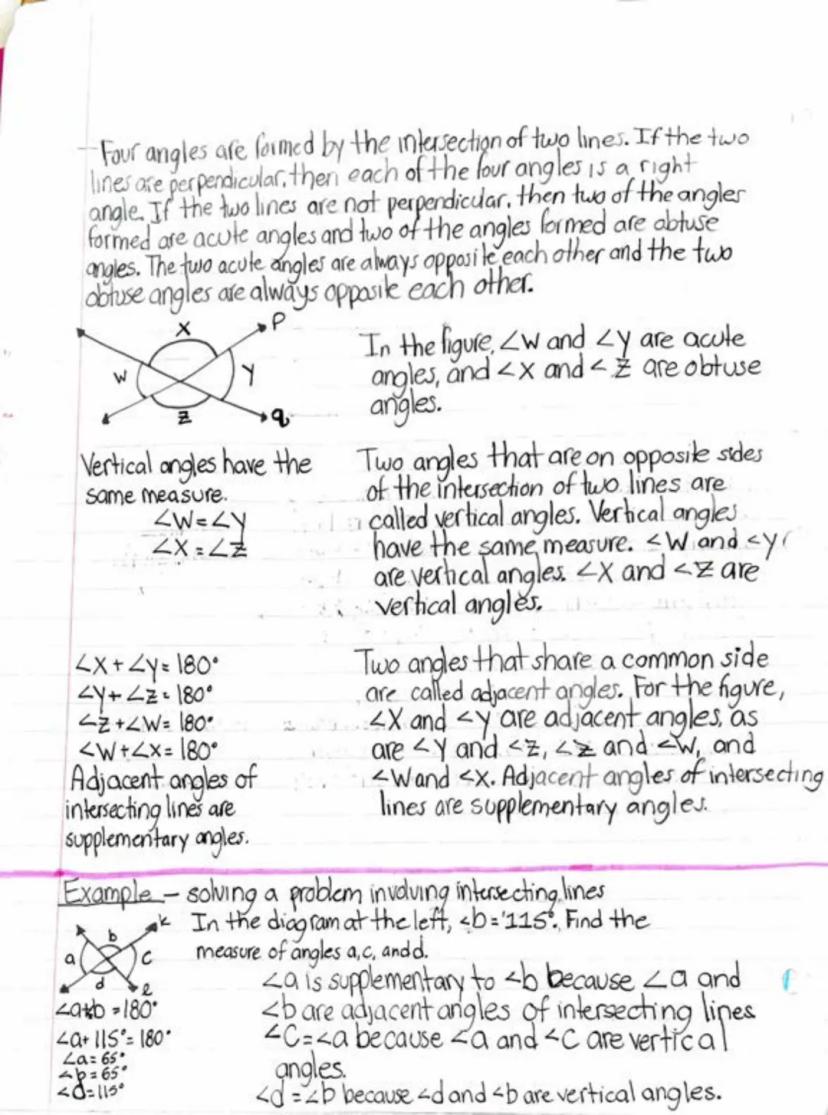 Four angles are formed by the intersection of two lines. If the two
lines are perpendicular, then each of the four angles is a right
angle. If the two lines are not perpendicular, then two of the angles
formed are acute angles and two of the angles formed are obtuse
angles. The two acute angles are always opposite each other and the two
obtuse angles are always opposite each other.
X
P
W
Y
Z
q
In the figure, ∠W and ∠Y are acute
angles, and ∠X and ∠Z are obtuse
angles.
Vertical angles have the
same measure.
∠W=∠Y
∠X=∠Z
Two angles that are on opposite sides
of the intersection of two lines are
called vertical angles. Vertical angles
have the same measure. ∠W and ∠Y
are vertical angles. ∠X and ∠Z are
vertical angles.
∠X+∠Y=180°
∠Y+∠Z=180°
∠Z+∠W=180°
∠W+∠X=180°
Adjacent angles of
intersecting lines are
supplementary angles.
Two angles that share a common side
are called adjacent angles. For the figure,
∠X and ∠Y are adjacent angles, as
are ∠Y and ∠Z, ∠Z and ∠W, and
∠W and ∠X. Adjacent angles of intersecting
lines are supplementary angles.
Example - solving a problem involving intersecting lines
In the diagram at the left, ∠b=115°. Find the
measure of angles a, c, and d.
k
b
a
c
d
l
∠a+b=180°
∠a+115°=180°
∠a=65°
∠b=65°
∠d=115°
∠a is supplementary to ∠b because ∠a and
∠b are adjacent angles of intersecting lines
∠C=∠a because ∠a and ∠C are vertical
angles.
∠d=∠b because ∠d and ∠b are vertical angles.